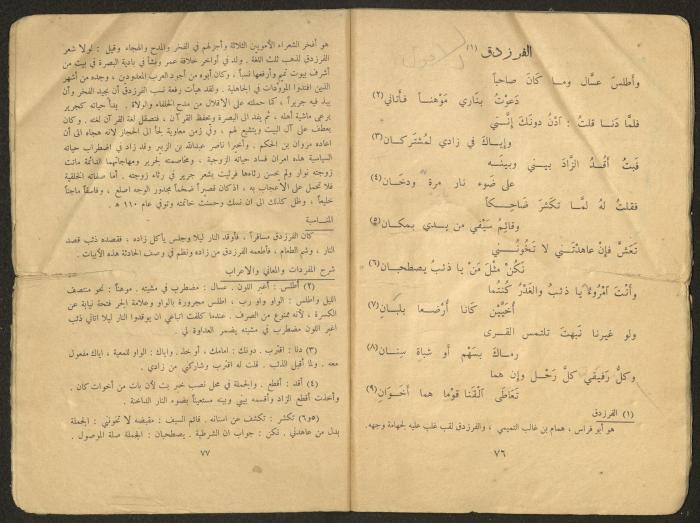 الفرزدق (١)
وأطلس عسّال وما كان صاحباً
دعوتُ بناري موْهناً فأتاني (٢)
فلمّا دَنا قلتُ : آدْنُ دونَكَ إنَّني
وإياكَ في زادي لمُشتَركان (٣)
فبَتُّ أقُدُّ الزَّادَ بيني وبينَه
على ضَوء نار مرة ودخَان (٤)
فقلتُ له لمَّا تكشّرَ ضَاحِكاً
وقائمُ سيْفي من يدي بمكان (٥)
تعَشَّ فإنْ عاهدْتَني لا تَخونُني
نَكُنْ مثْلَ مَنْ يا ذئبُ يصطحبان (٦)
وأنْتَ امْرُءٌ يا ذئبُ والغَدْرُ كُنْتُما
أُخَيَّيْنِ كانا أُرْضعا بلبان (٧)
ولو غيرنا نبّهتَ تلتمس القرى
رماكَ بسَهْم أو شباةِ سِنان (٨)
وكلُّ رفيقَي كلِّ رَحْل وإن هما
تعَاطَى القَنا قوْما هما أخَوان (٩)
(١) الفرزدق
هو أبو فراس ، همام بن غالب التميمي ، والفرزدق لقب غلب عليه لجهامة وجهه .
٧٦
هو أفخر الشعراء الأمويين الثلاثة وأجزلهم في الفخر والمدح والهجاء وقيل : لولا شعر
الفرزدق لذهب ثلث اللغة . ولد في أواخر خلافة عمر ونشأ في بادية البصرة في بيت من
أشرف بيوت تميم وأرفعها نسباً ، وكان أبوه من أجود العرب المعدودين ، وجده من أشهر
الذين افتدوا الموؤدات في الجاهلية . ولقد هيأت رفعة نسب الفرزدق أن يجيد الفخر وأن
يبذ فيه جريراً ، كما حملته على الاقلال من مدح الخلفاء والولاة . بدأ حياته كجرير
يرعى ماشية أهله ، ثم يفد الى البصرة ويحفظ القرآن ، فتصقل لغة القرآن لغته . وكان
يعطف على آل البيت ويتشيع لهم ، وفي زمن معاوية لجأ الى الحجاز لانه هجاه الى أن
اعاده مروان بن الحكم . وأخيرا ناصر عبدالله بن الزبير وقد زاد في اضطراب حياته
السياسية هذه امران فساد حياته الزوجية ، ومخاصمته لجرير ومهاجاتهما الدائمة ماتت
زوجته نوار ولم يحسن رثاءها فرثيت بشعر جرير في رثاء زوجته . أما صفاته الخلقية
فلا تحمل على الاعجاب به ، اذ كان قصيراً ضخماً مجدور الوجه اصلع ، وفاسقاً ماجناً
خليعاً ، وظل كذلك الى ان نسك وحسنت خاتمته وتوفي عام ١١٠ ه .
المناسبة
كان الفرزدق مسافراً ، فأوقد النار ليلا وجلس يأكل زاده ، فقصده ذئب قصد
النار ، وشم الطعام ، فأطعمه الفرزدق من زاده ونظم في وصف الحادثة هذه الأبيات .
شرح المفردات والمعاني والاعراب
(٢) أطلس : أغبر اللون . عسال : مضطرب في مشيته . موهناً : نحو منتصف
الليل واطلس : الواو واو رب ، اطلس مجرورة بالواو وعلامة الجر فتحة نيابة عن
الكسرة ، لأنه ممنوع من الصرف . عندما كلفت اتباعي ان يوقدوا النار ليلا اتاني ذئب
اغبر اللون مضطرب في مشيته يضمر العداوة لي .
(٣) دنا : اقترب . دونك : امامك ، أو خذ . واياك : الواو للمعية ، اياك مفعول
معه . ولما أقبل الذئب . قلت له اقترب وشاركني من زادي .
(٤) أقد : أقطع . والجملة في محل نصب خبر بت لأن بات من أخوات كان .
وأخذت أقطع الزاد وأقسمه بيني وبينه مستعيناً بضوء النار الداخنة .
(٥و٦) تكشر : تكشف عن اسنانه . قائم السيف : مقبضه لا تخونني : الجملة
بدل من عاهدتني . نكن : جواب ان الشرطية . يصطحبان : الجملة صلة الموصول .
٧٧